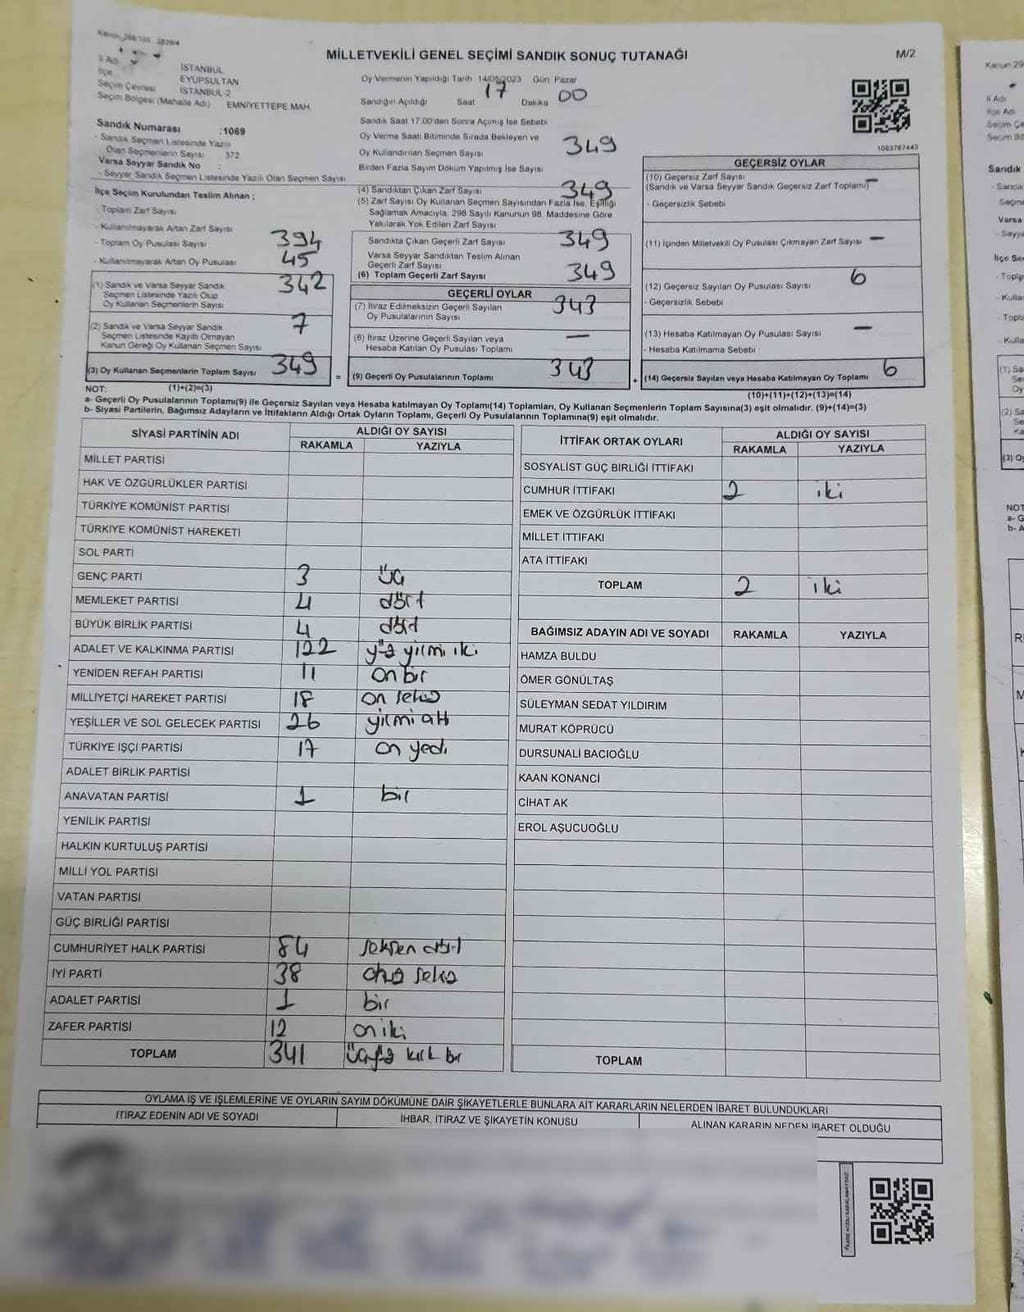 MİLLETVEKİLİ GENEL SEÇİMİ SANDIK SONUÇ TUTANAĞI
M/2
İl Adı İSTANBUL
İlçe EYÜPSULTAN
Seçim Çevresi İSTANBUL-2
Seçim Bölgesi (Mahalle Adı) EMNİYETTEPE MAH.
Oy Vermenin Yapıldığı Tarih 14/05/2023 Gün Pazar
Sandığın Açıldığı Saat 17 Dakika 00
Sandık Numarası :1069
- Sandık Seçmen Listesinde Yazılı
Olan Seçmenlerin Sayısı 372
Varsa Seyyar Sandık No :
- Seyyar Sandık Seçmen Listesinde Yazılı Olan Seçmen Sayısı
Sandık Saat 17.00'den Sonra Açılmış İse Sebebi
Oy Verme Saati Bitiminde Sırada Bekleyen ve
Oy Kullandırılan Seçmen Sayısı 349
Birden Fazla Sayım Döküm Yapılmış İse Sayısı
1093787443
İlçe Seçim Kurulundan Teslim Alınan ;
- Toplam Zarf Sayısı
- Kullanılmayarak Artan Zarf Sayısı
- Toplam Oy Pusulası Sayısı 394
- Kullanılmayarak Artan Oy Pusulası 45
(1) Sandık ve Varsa Seyyar Sandık 342
Seçmen Listesinde Yazılı Olup
Oy Kullanan Seçmenlerin Sayısı
(2) Sandık ve Varsa Seyyar Sandık 7
Seçmen Listesinde Kaydı Olmayan
Kanun Gereği Oy Kullanan Seçmen Sayısı
(3) Oy Kullanan Seçmenlerin Toplam Sayısı 349
=
(4) Sandıktan Çıkan Zarf Sayısı 349
(5) Zarf Sayısı Oy Kullanan Seçmen Sayısından Fazla İse, Eşitliği
Sağlamak Amacıyla, 298 Sayılı Kanunun 98. Maddesine Göre
Yakılarak Yok Edilen Zarf Sayısı
Sandıkta Çıkan Geçerli Zarf Sayısı 349
Varsa Seyyar Sandıktan Teslim Alınan
Geçerli Zarf Sayısı
(6) Toplam Geçerli Zarf Sayısı 349
GEÇERLİ OYLAR
(7) İtiraz Edilmeksizin Geçerli Sayılan 343
Oy Pusulalarının Sayısı
(8) İtiraz Üzerine Geçerli Sayılan veya —
Hesaba Katılan Oy Pusulası Toplamı
(9) Geçerli Oy Pusulalarının Toplamı 343
+
GEÇERSİZ OYLAR
(10) Geçersiz Zarf Sayısı
(Sandık ve Varsa Seyyar Sandık Geçersiz Zarf Toplamı) —
- Geçersizlik Sebebi
(11) İçinden Milletvekili Oy Pusulası Çıkmayan Zarf Sayısı —
(12) Geçersiz Sayılan Oy Pusulası Sayısı 6
- Geçersizlik Sebebi
(13) Hesaba Katılmayan Oy Pusulası Sayısı —
- Hesaba Katılmama Sebebi
(14) Geçersiz Sayılan veya Hesaba Katılmayan Oy Toplamı 6
NOT: (1)+(2)=(3)
(10)+(11)+(12)+(13)=(14)
a- Geçerli Oy Pusulalarının Toplamı(9) ile Geçersiz Sayılan veya Hesaba katılmayan Oy Toplamı(14) Toplamları, Oy Kullanan Seçmenlerin Toplam Sayısına(3) eşit olmalıdır. (9)+(14)=(3)
b- Siyasi Partilerin, Bağımsız Adayların ve İttifakların Aldığı Ortak Oyların Toplamı, Geçerli Oy Pusulalarının Toplamına(9) eşit olmalıdır.
SİYASİ PARTİNİN ADI ALDIĞI OY SAYISI
RAKAMLA YAZIYLA
MİLLET PARTİSİ
HAK VE ÖZGÜRLÜKLER PARTİSİ
TÜRKİYE KOMÜNİST PARTİSİ
TÜRKİYE KOMÜNİST HAREKETİ
SOL PARTİ
GENÇ PARTİ 3 üç
MEMLEKET PARTİSİ 4 dört
BÜYÜK BİRLİK PARTİSİ 4 dört
ADALET VE KALKINMA PARTİSİ 122 yüz yirmi iki
YENİDEN REFAH PARTİSİ 11 on bir
MİLLİYETÇİ HAREKET PARTİSİ 18 on sekiz
YEŞİLLER VE SOL GELECEK PARTİSİ 26 yirmi altı
TÜRKİYE İŞÇİ PARTİSİ 17 on yedi
ADALET BİRLİK PARTİSİ
ANAVATAN PARTİSİ 1 bir
YENİLİK PARTİSİ
HALKIN KURTULUŞ PARTİSİ
MİLLİ YOL PARTİSİ
VATAN PARTİSİ
GÜÇ BİRLİĞİ PARTİSİ
CUMHURİYET HALK PARTİSİ 84 seksen dört
İYİ PARTİ 38 otuz sekiz
ADALET PARTİSİ 1 bir
ZAFER PARTİSİ 12 on iki
TOPLAM 341 üçyüz kırk bir
İTTİFAK ORTAK OYLARI ALDIĞI OY SAYISI
RAKAMLA YAZIYLA
SOSYALİST GÜÇ BİRLİĞİ İTTİFAKI
CUMHUR İTTİFAKI 2 iki
EMEK VE ÖZGÜRLÜK İTTİFAKI
MİLLET İTTİFAKI
ATA İTTİFAKI
TOPLAM 2 iki
BAĞIMSIZ ADAYIN ADI VE SOYADI RAKAMLA YAZIYLA
HAMZA BULDU
ÖMER GÖNÜLTAŞ
SÜLEYMAN SEDAT YILDIRIM
MURAT KÖPRÜCÜ
DURSUNALİ BACIOĞLU
KAAN KONANCİ
CİHAT AK
EROL AŞUCUOĞLU
TOPLAM
OYLAMA İŞ VE İŞLEMLERİNE VE OYLARIN SAYIM DÖKÜMÜNE DAİR ŞİKAYETLERLE BUNLARA AİT KARARLARIN NELERDEN İBARET BULUNDUKLARI
İTİRAZ EDENİN ADI VE SOYADI İHBAR, İTİRAZ VE ŞİKAYETİN KONUSU ALINAN KARARIN NEDEN İBARET OLDUĞU